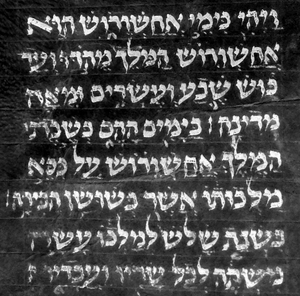 ויהי בימי אחשורוש הוא
אחשורוש המלך מהדו ועד
כוש שבע ועשרים ומאה
מדינה בימים ההם כשבת
המלך אחשורוש על כסא
מלכותו אשר בשושן הבירה
בשנת שלש למלכו עשה
משתה לכל שריו ועבדיו